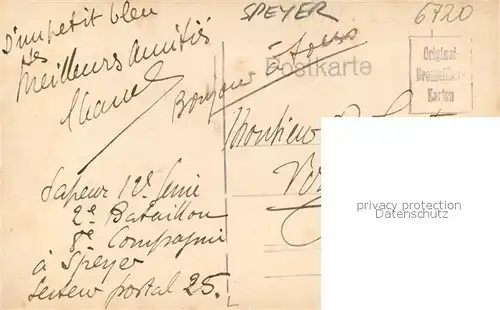 SPEYER
6720
d'un petit bleu
les
meilleurs amitiés
Bonjour à tous
Postkarte
Original-
Bromsilber-
Karten
Monsieur
Sapeur 12e Genie
2e Bataillon
8e Compagnie
à Speyer
Secteur postal 25.
privacy protection
Datenschutz